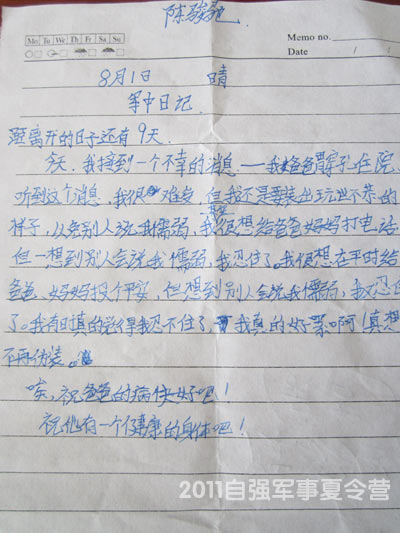 陈骏驰
Memo no.
Mo Tu We Th Fr Sa Su
Date / /
8月1日 晴
军中日记
距离开的日子还有9天.
今天,我接到一个不幸的消息——我爸爸胃穿孔住院,
听到这个消息,我很难受,但我还是要装出玩世不恭的
样子,以免别人说我懦弱,其实我很想给爸爸妈妈打电话
但一想到别人会说我懦弱,我忍住了。我很想在平时给
爸爸、妈妈报个平安,但想到别人会说我懦弱,我又忍住
了。我有时真的觉得我忍不住了,我真的好累啊!真想
不再伪装。
唉,祝爸爸的病快好吧!
祝他有一个健康的身体吧!
2011自强军事夏令营